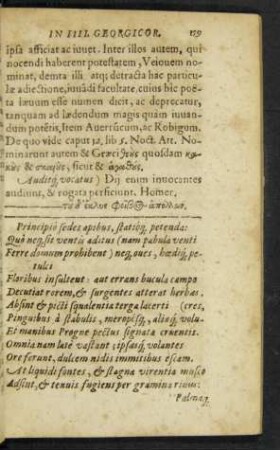 IN IIII. GEORGICOR. 159
ipsa afficiat ac iuuet. Inter illos autem, qui
nocendi haberent potestatem, Veiouem no
minat, demta illi atq; detracta hac particu
læ adiectione, iuuādi facultate, cuius hic poë
ta læuum esse numen dicit, ac deprecatur,
tanquam ad lædendum magis quàm iuuan
dum potētis, Item Auerrūcum, ac Robigum.
De quo vide caput 12, lib 5. Noct. Att. No
minarunt autem & Græci quosdam
sicut &
Auditq́; vocatus) Dij enim innocentes
audiunt, & rogata perficiunt. Homer,
Principio sedes apibus, statioq́; petenda:
Quò neq; sit ventis aditus (nam pabula venti
Ferre domum prohibent) neq; oues, hœdiq́; pe-
tulci
Floribus insultent: aut errans bucula campo
Decutiat rorem, & surgentes atterat herbas.
Absint & picti squalentia terga lacerti
Pinguibus à stabulis, meropesq́;, aliæq́; volu-
Et manibus Progne pectus signata cruentis.
Omnia nam latè vastant; ipsasq́; volantes
Ore ferunt, dulcem nidis immitibus escam.
At liquidi fontes, & stagna virentia musco
Adsint, & tenuis fugiens per gramina riuus:
Palmaq́;